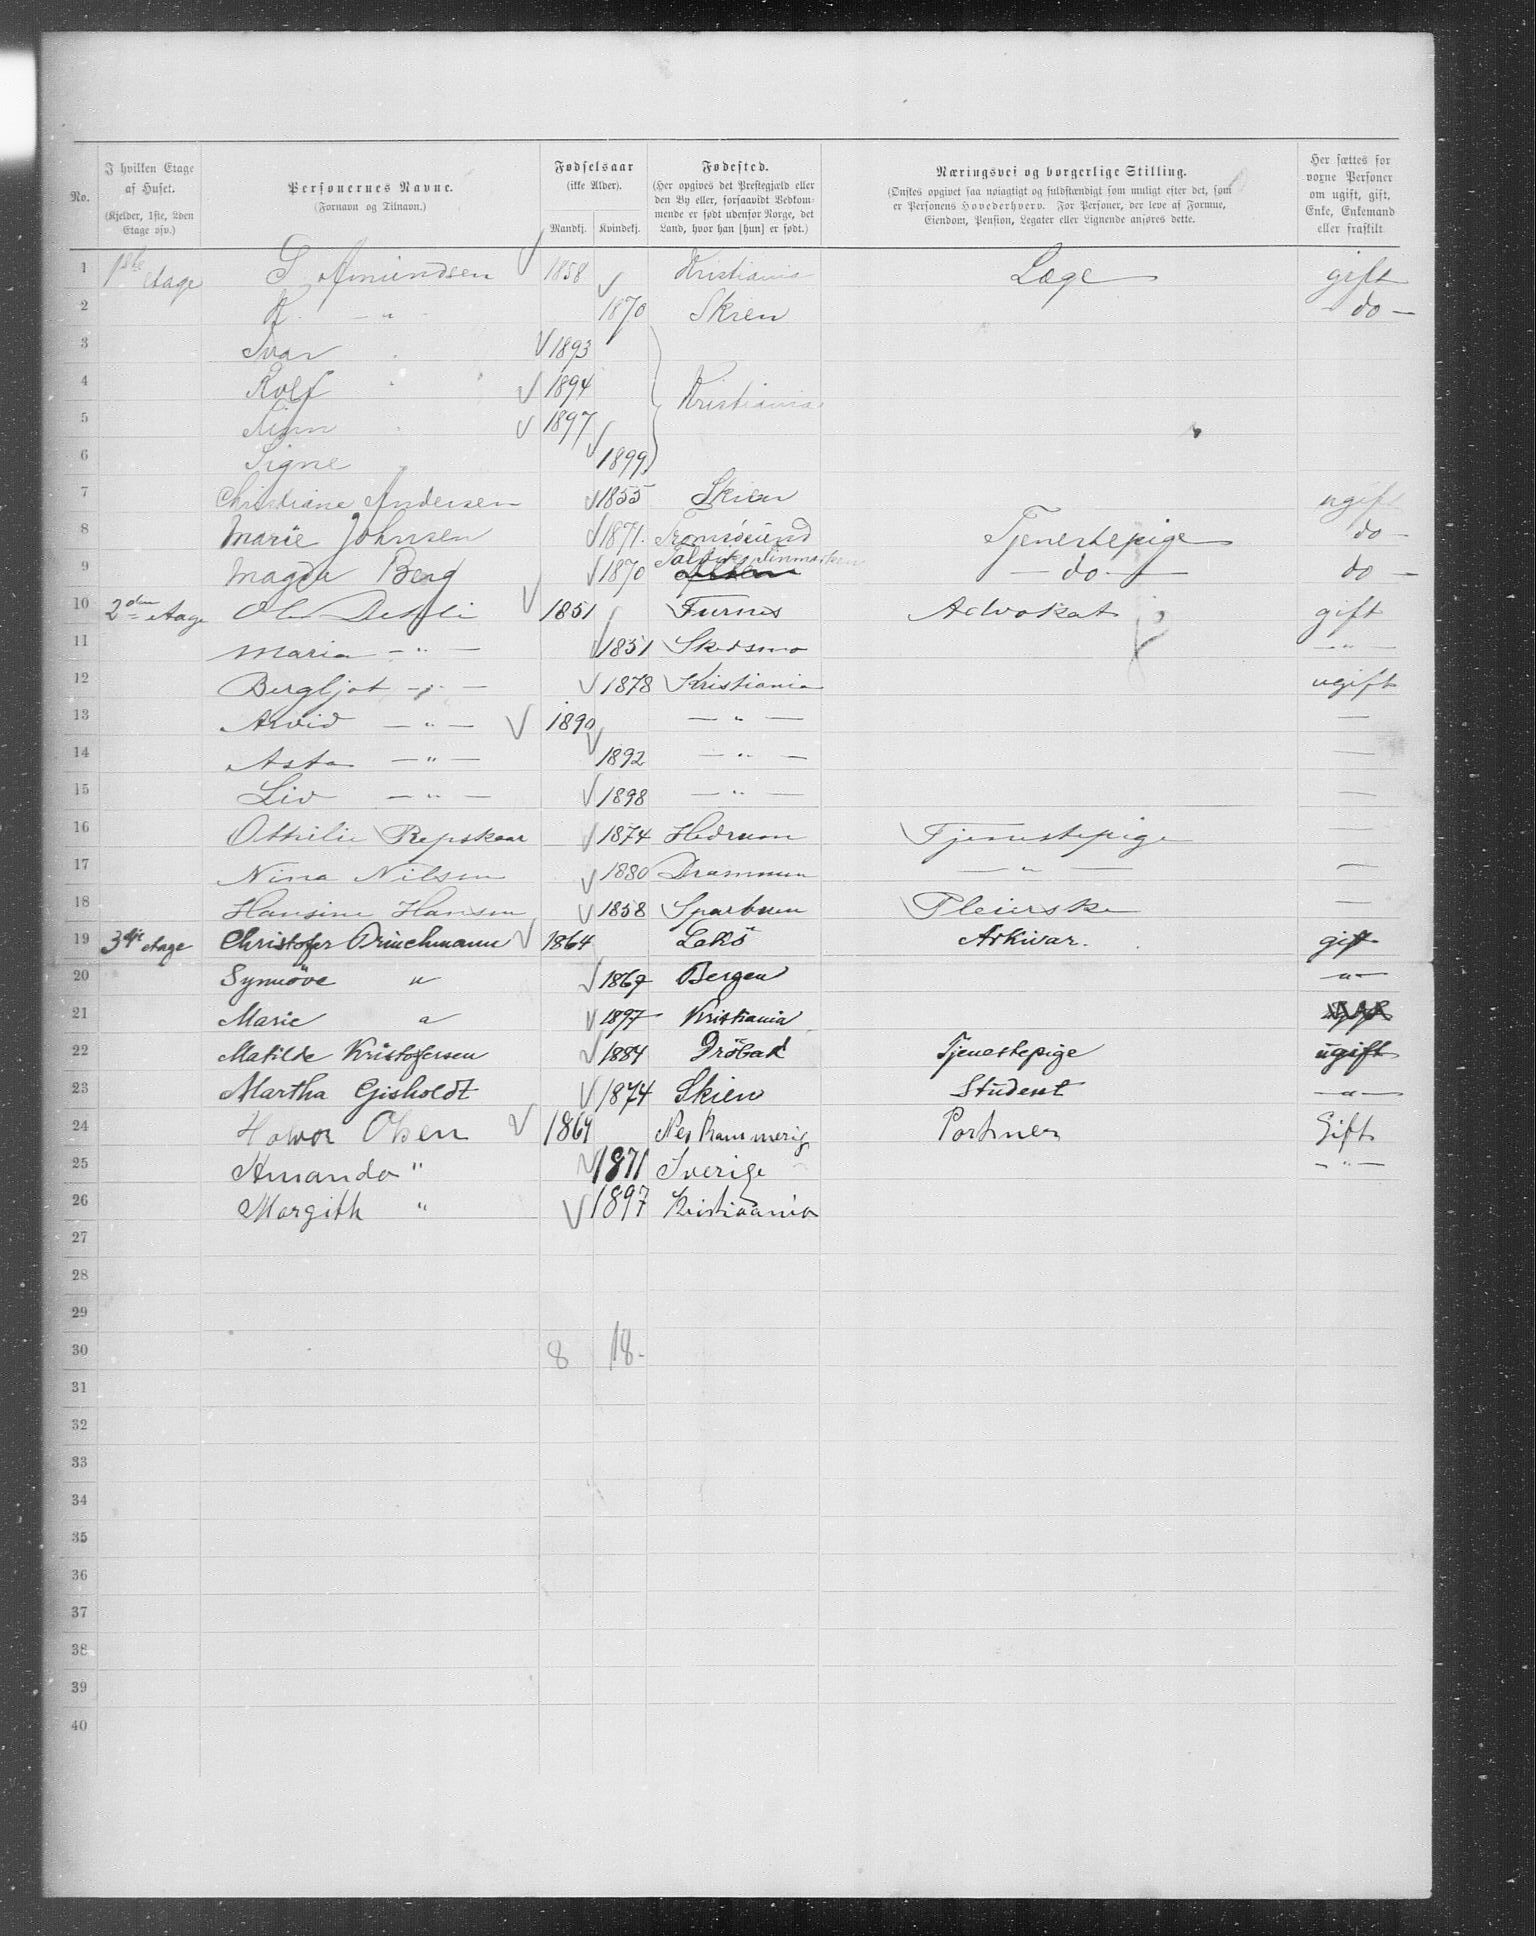 No.
I hvilken Etage af Huset.
(Kjelder, 1ste, 2den Etage osv.)
Personernes Navne.
(Fornavn og Tilnavn.)
Fødselsaar
(ikke Alder).
Mandkj. Kvindekj.
Fødested.
(Her opgives det Prestegjæld eller den By eller, forsaavidt Vedkommende er født udenfor Norge, det Land, hvor han [hun] er født.)
Næringsvei og borgerlige Stilling.
(Ønskes opgivet saa nøiagtigt og fuldstændigt som muligt efter det, som er Personens Hovederhverv. For Personer, der leve af Formue, Eiendom, Pension, Legater eller Lignende anføres dette.
Her sættes for voxne Personer om ugift, gift, Enke, Enkemand eller fraskilt
1 1ste etage S. Amundsen 1858 Kristiania Læge gift
2 K. — " — 1870 Skien do —
3 Ivar " 1893
4 Rolf " 1894 Kristiania
5 Finn " 1897
6 Signe " 1899
7 Christiane Andersen 1855 Skien ugift
8 Marie Johnsen 1871. Tromsøsund Tjenestepige do —
9 Magda Berg 1870 Talvik Finmarken — do — do —
10 2den Etage Ole Dehli 1851 Furnes Advokat gift
11 Maria — " — 1851 Skedsmo — " —
12 Bergljot — " — 1878 Kristiania ugift
13 Arvid — " — 1890 — " — —
14 Asta — " — 1892 — " — —
15 Liv — " — 1898 — " — —
16 Othilie Repskaar 1874 Hedrum Tjenestepige —
17 Nina Nilsen 1880 Drammen — " — —
18 Hansine Hansen 1858 Sparbuen Pleierske —
19 3dje etage Christofer Brinchmann 1864 Lekö Arkivar. gift
20 Synnöve " 1867 Bergen — " —
21 Marie " 1897 Kristiania
22 Matilde Kristofersen 1884 Dröbak Tjenestepige ugift
23 Martha Gisholdt 1874 Skien Student — " —
24 Halvor Olsen 1869 Nes Portner Gift
25 Amanda " 1871 Sverige — " —
26 Margith " 1897 Kristiaania
27
28
29
30 8 18.
31
32
33
34
35
36
37
38
39
40